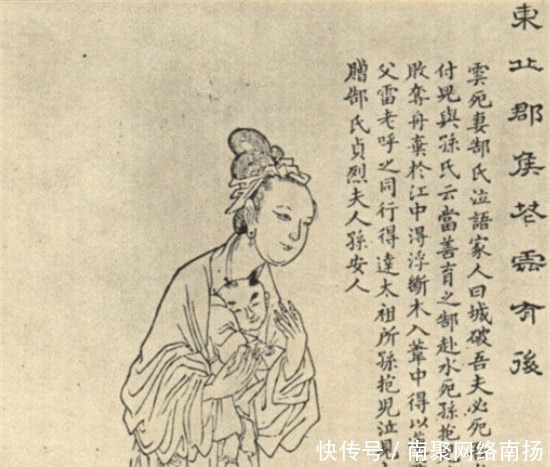 東丘郡侯花雲有後
雲死妻郜氏泣語家人曰城破吾夫必死
付兒與孫氏云當善育之郜赴水死孫抱
敗奪舟棄於江中得浮斷木入葦中得以
父雷老呼之同行得達太祖所孫抱兒泣
贈郜氏貞烈夫人孫安人
快传号 / 南聚网络南扬